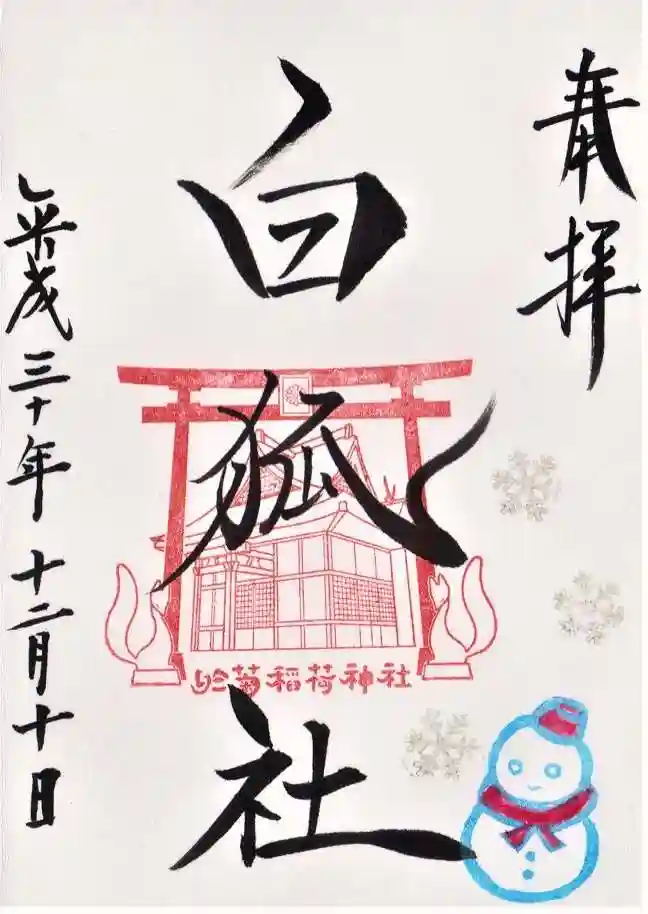 奉拝
白狐社
於菊稲荷神社
平成三十年十二月十日